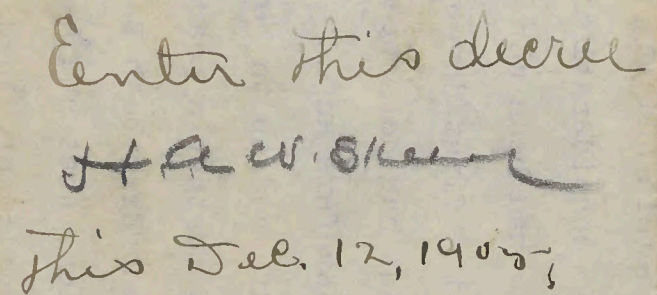 Enter this decree
H A W. Skeen
This Dec. 12, 1905,